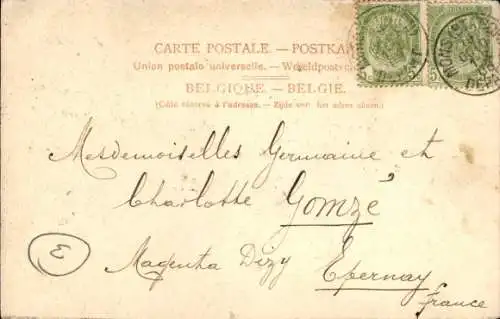 CARTE POSTALE. — POSTKAART
Union postale universelle. — Wereldpostvereeniging
BELGIQUE. — BELGIE.
(Côté réservé à l'adresse. — Zijde voor het adres alleen.)
Mesdemoiselles Germaine et
Charlotte Gomzé
Magenta Dizy Epernay
France
E